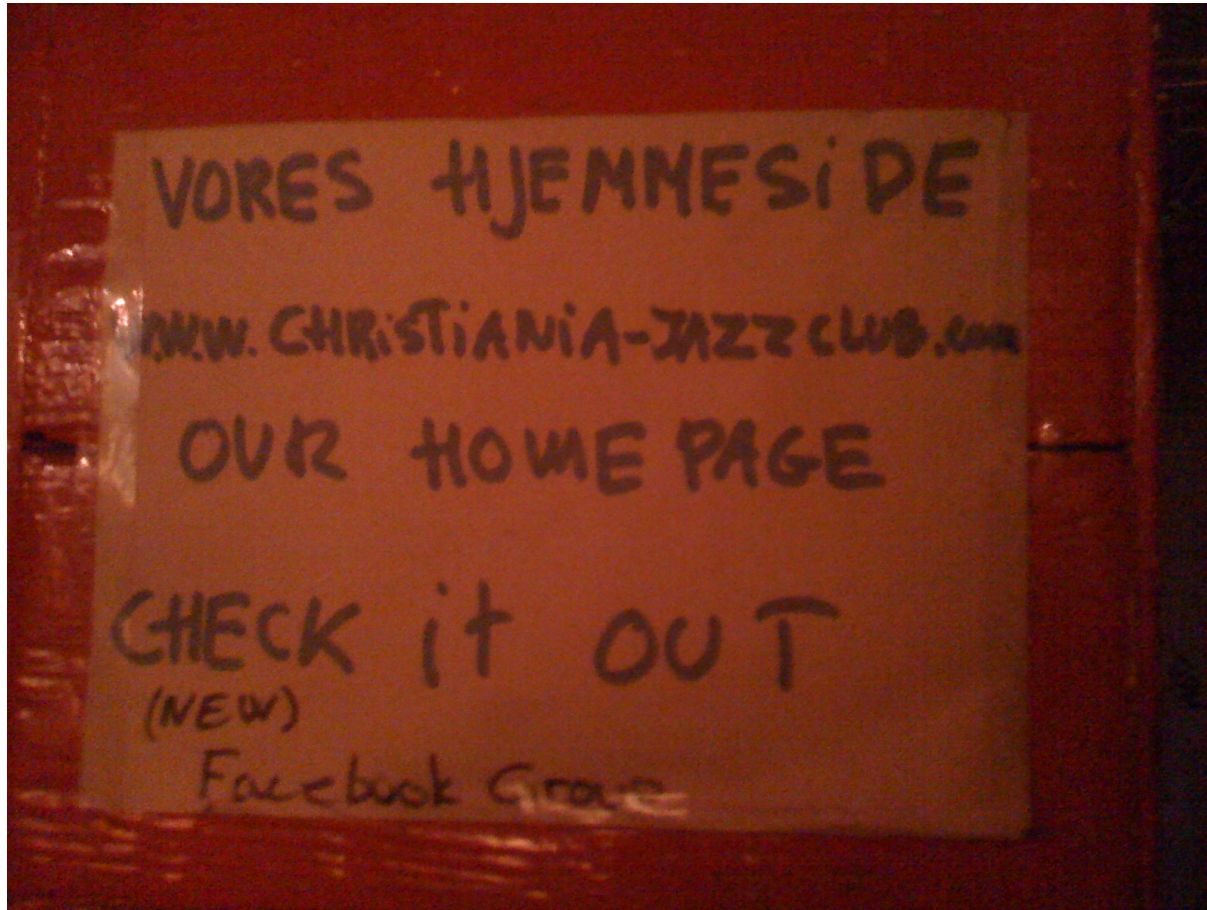 VORES HJEMMESiDE
www.CHRiSTiANiA-JAZZCLUB.com
OUR HOMEPAGE
CHECK it OUT
(NEW)
Facebook Group